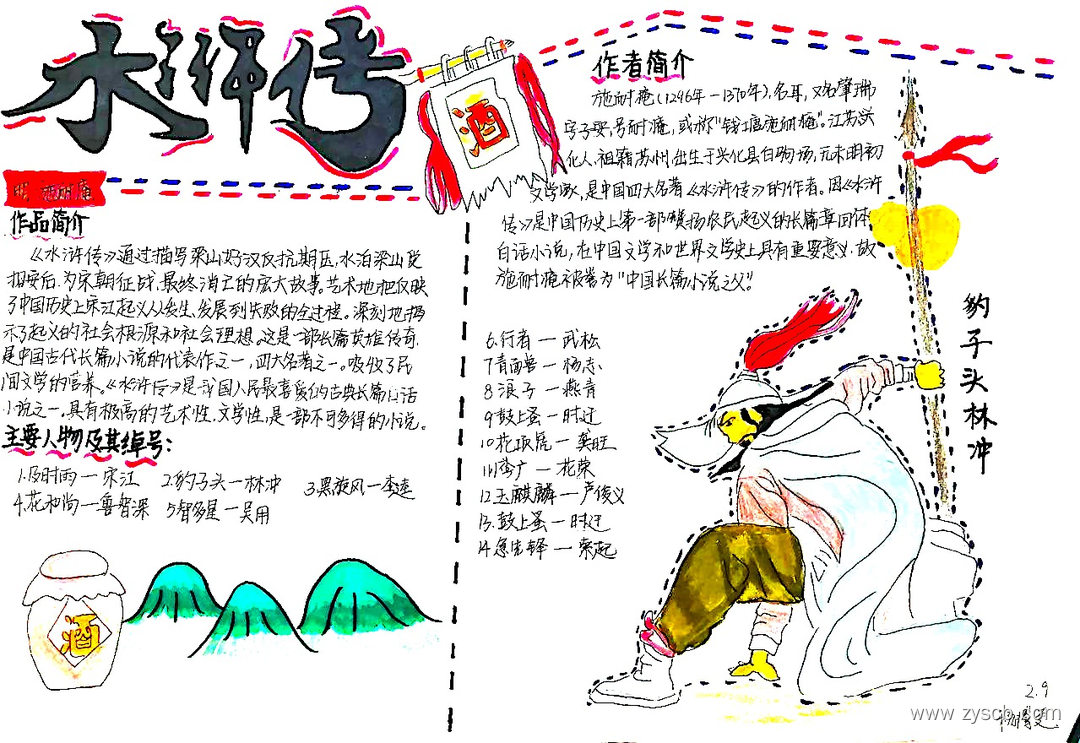 水浒传
酒
明 施耐庵
作品简介
《水浒传》通过描写梁山好汉反抗欺压,水泊梁山受
招安后,为宋朝征战,最终消亡的宏大故事。艺术地反映
了中国历史上宋江起义从发生、发展到失败的全过程。深刻地揭
示了起义的社会根源和社会理想。这是一部长篇英雄传奇,
是中国古代长篇小说的代表作之一,四大名著之一。吸收了民
间文学的营养。《水浒传》是我国人民最喜爱的古典长篇白话
小说之一。具有极高的艺术性、文学性,是一部不可多得的小说。
主要人物及其绰号:
1.及时雨一宋江 2.豹子头一林冲 3.黑旋风一李逵
4.花和尚一鲁智深 5智多星一吴用
酒
作者简介
施耐庵(1296年—1370年),名耳,又名肇瑞
字子安,号耐庵,或称"钱塘施耐庵"。江苏兴
化人,祖籍苏州,出生于兴化县白驹场,元末明初
文学家,是中国四大名著《水浒传》的作者。因《水浒
传》是中国历史上第一部 农民起义的长篇章回体
白话小说,在中国文学和世界文学史上具有重要意义,故
施耐庵被誉为"中国长篇小说之父"。
6.行者一武松
7青面兽一杨志
8浪子一燕青
9鼓上蚤一时迁
10花项虎一龚旺
11小李广一花荣
12玉麒麟一卢俊义
13.鼓上蚤一时迁
14急先锋一索超
豹子头林冲
2.9
www.zyscb.com